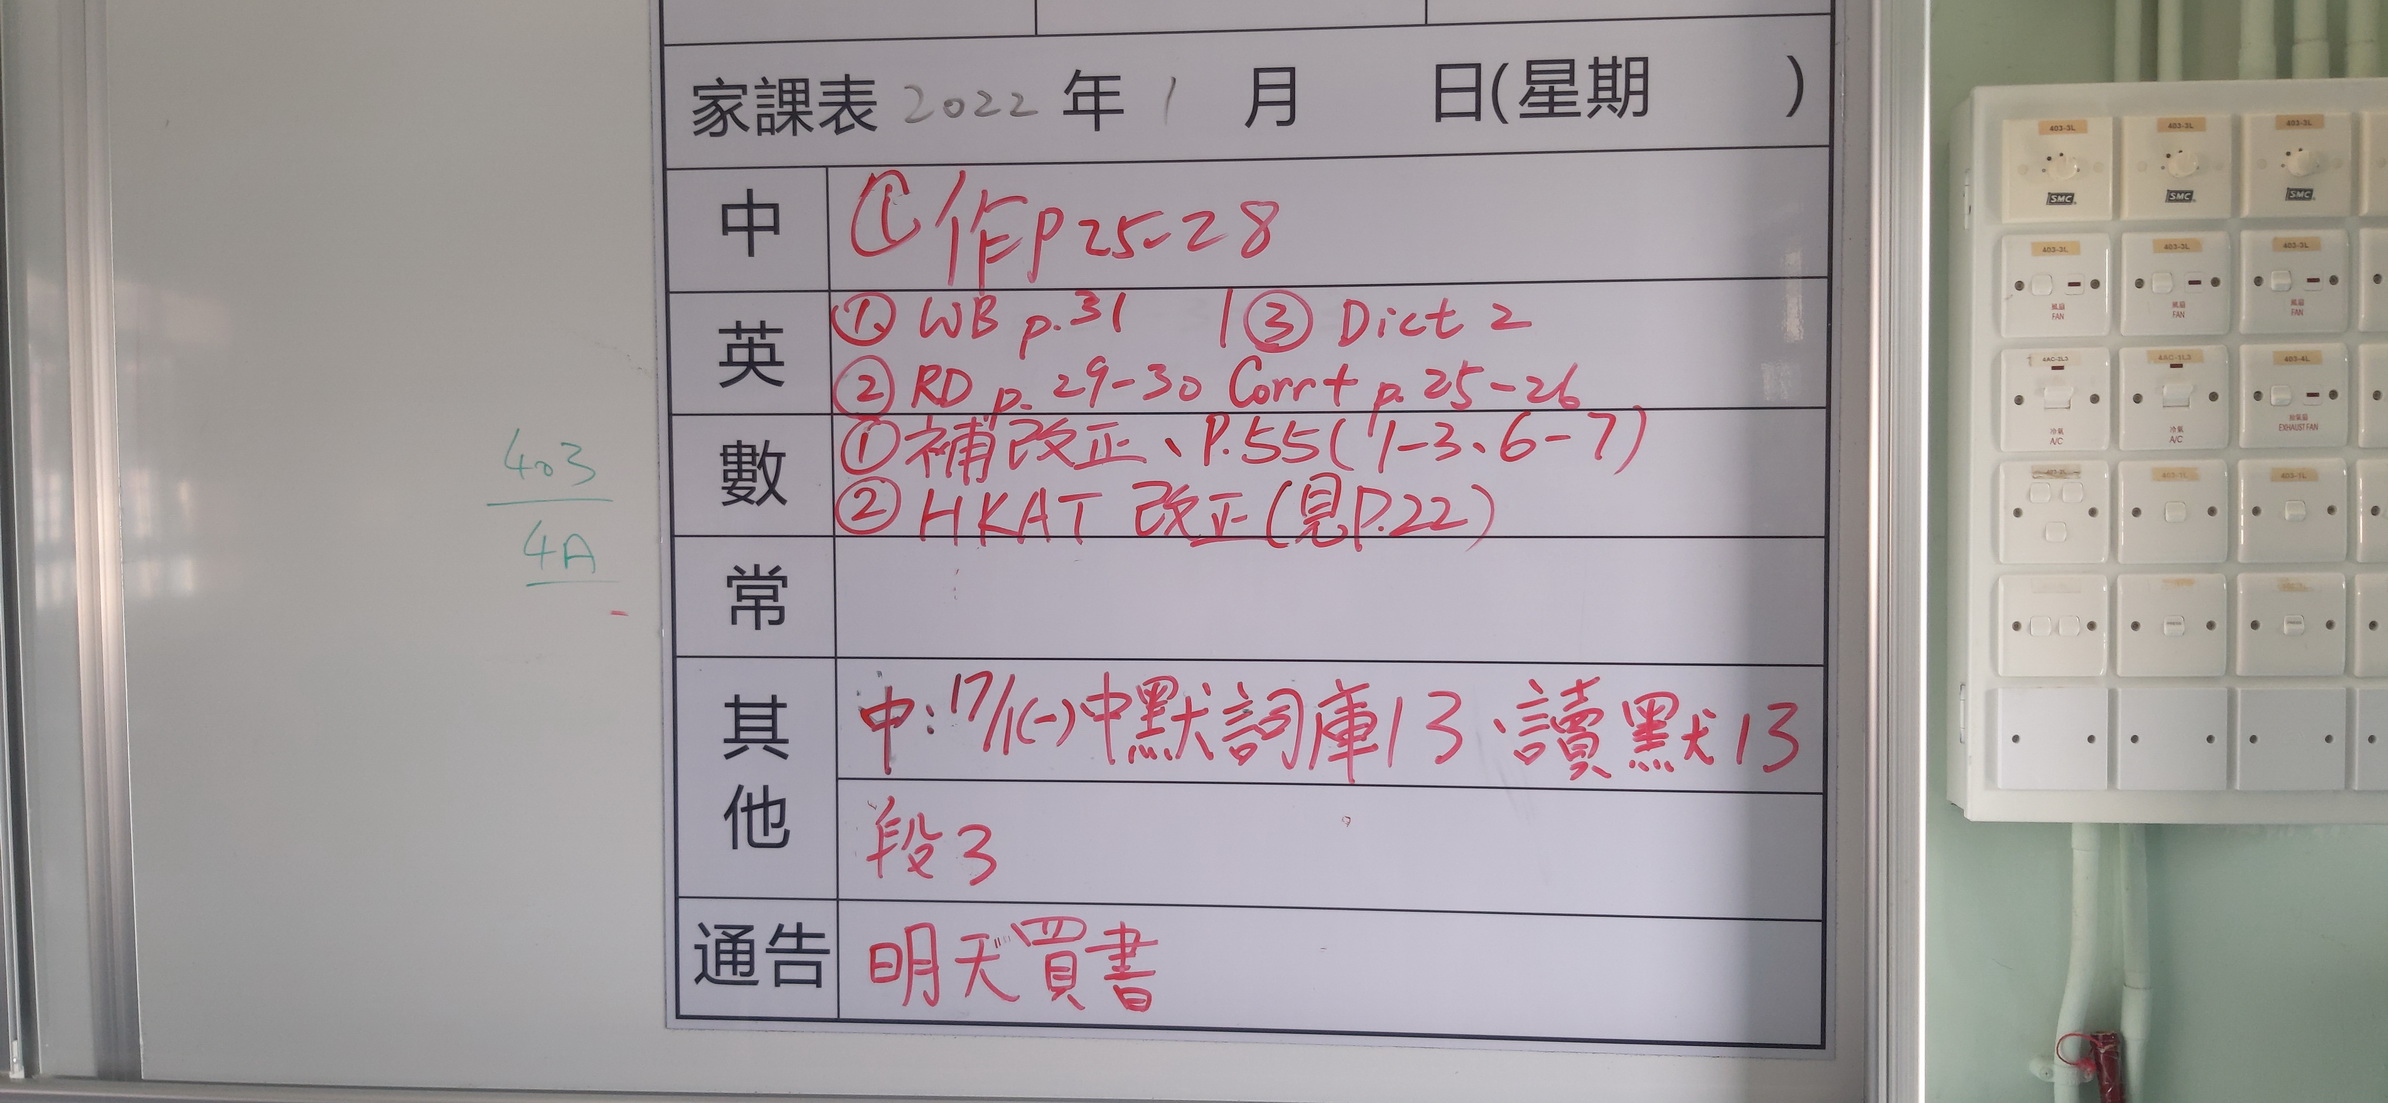 家課表 2022 年 1 月 日(星期 )
中 ① 作 p 25-28
英 ① WB p.31 | ③ Dict 2
② RD p. 29-30 Corrt p. 25-26
數 ① 補改正、P.55(1-3、6-7)
② HKAT 改正(見P.22)
常
其他 中:17/1(一)中默詞庫13、讀默13
段3
通告 明天買書
403
4A
403-3L 403-3L 403-3L
SMC SMC SMC
403-3L 403-3L 403-3L
風扇 風扇 風扇
FAN FAN FAN
4AC-1L3 403-4L
冷氣 冷氣 抽氣扇
A/C A/C EXHAUST FAN
403-1L 403-1L